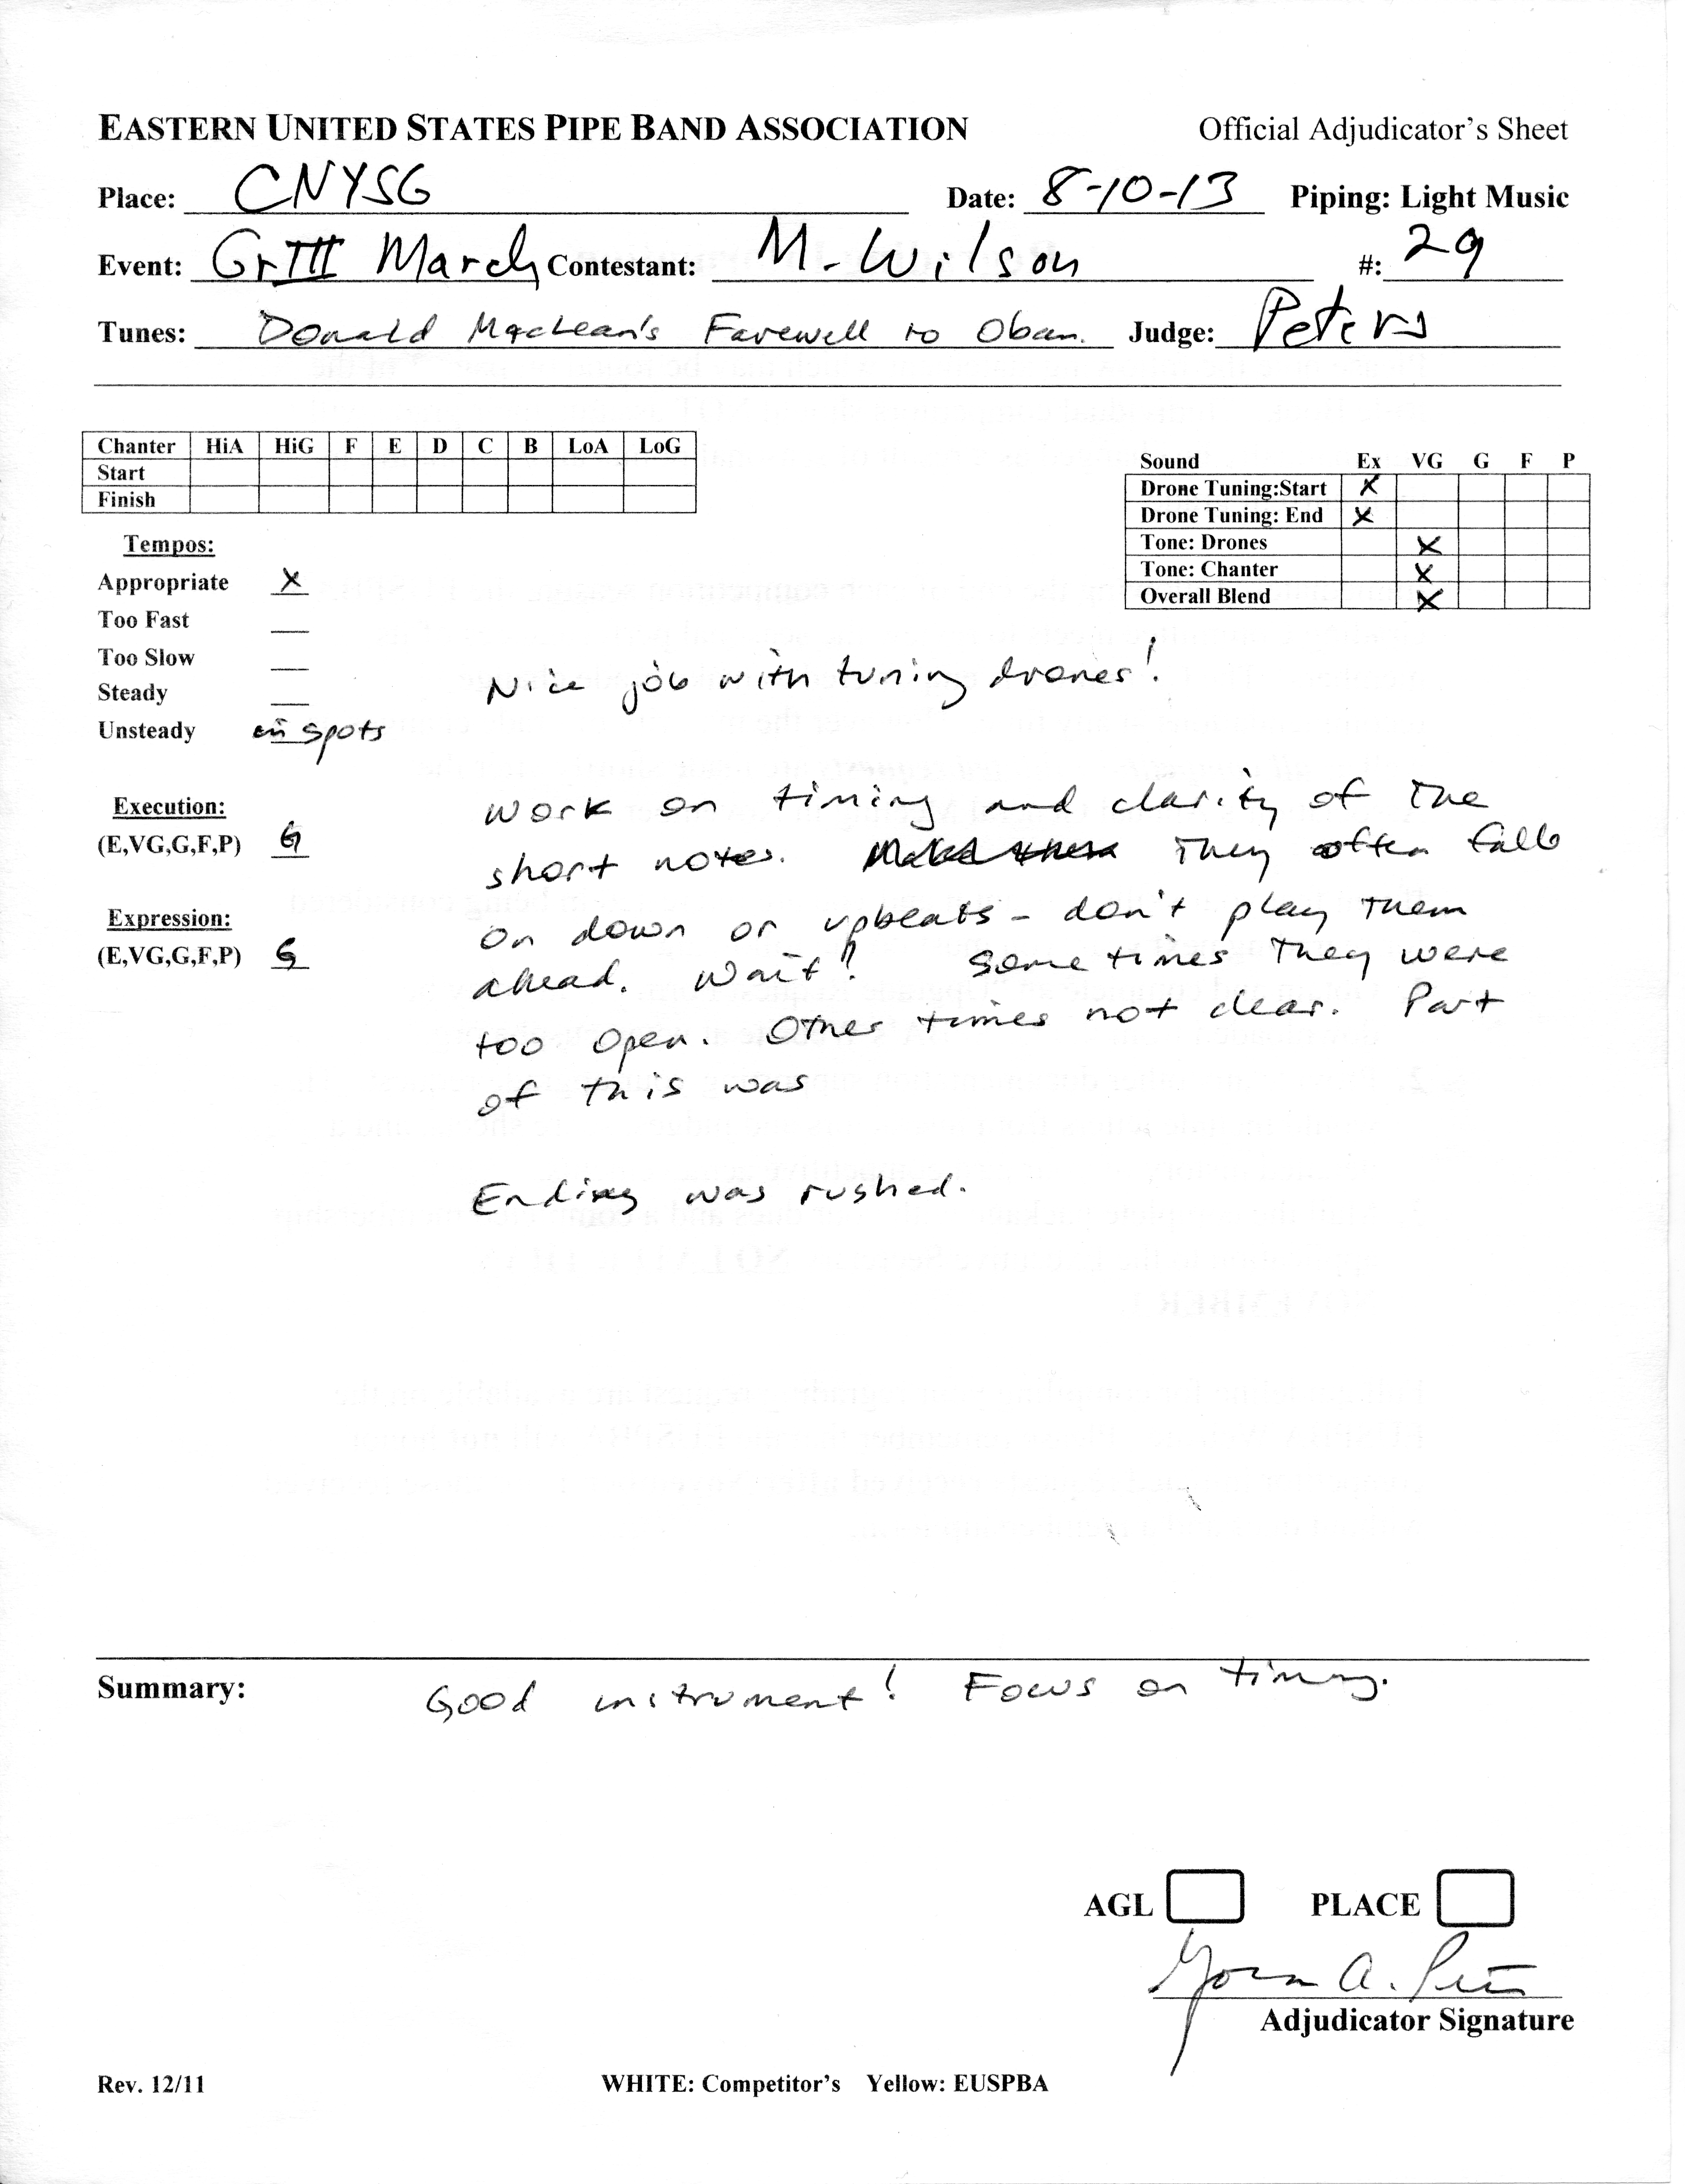 EASTERN UNITED STATES PIPE BAND ASSOCIATION Official Adjudicator's Sheet
Place: CNYSG Date: 8-10-13 Piping: Light Music
Event: Gr III March Contestant: M. Wilson #: 29
Tunes: Donald MacLean's Farewell to Oban. Judge: Peters
Chanter HiA HiG F E D C B LoA LoG
Start
Finish
Sound Ex VG G F P
Drone Tuning:Start X
Drone Tuning: End X
Tone: Drones X
Tone: Chanter X
Overall Blend X
Tempos:
Appropriate X
Too Fast
Too Slow
Steady
Unsteady in spots
Nice job with tuning drones!
Execution:
(E,VG,G,F,P) G
Expression:
(E,VG,G,F,P) G
Work on timing and clarity of the
short notes. They often fall
on down or upbeats - don't play them
ahead. Wait! Sometimes they were
too open. Other times not clear. Part
of this was
Ending was rushed.
Summary: Good instrument! Focus on timing.
AGL PLACE
Adjudicator Signature
Rev. 12/11 WHITE: Competitor's Yellow: EUSPBA